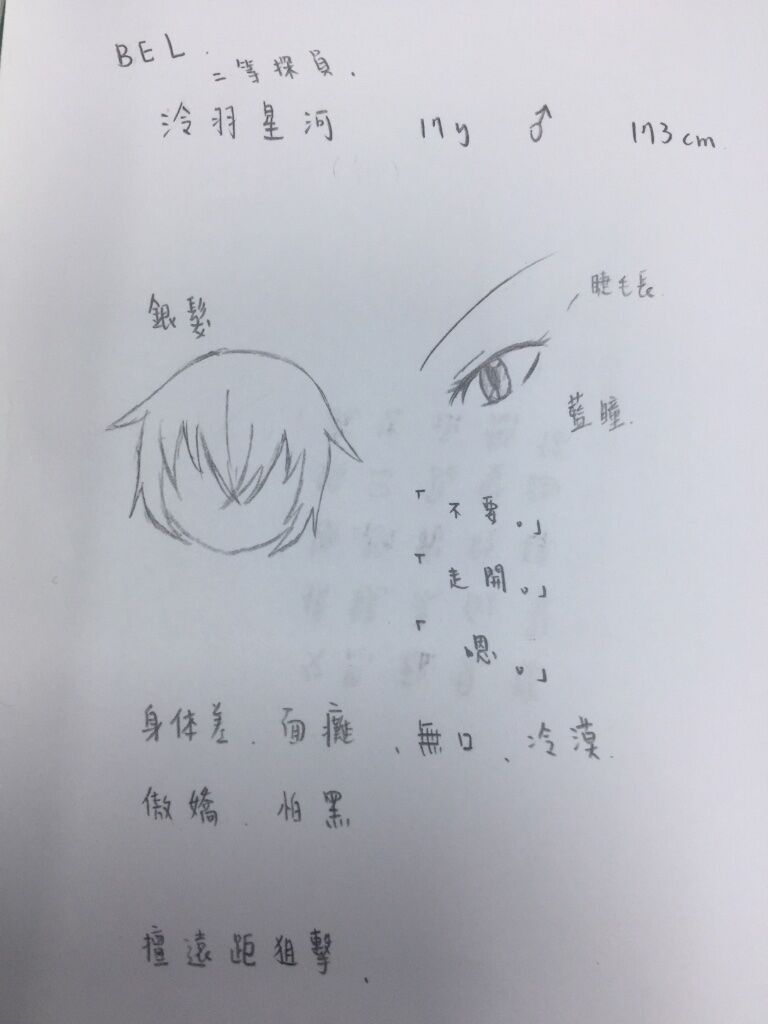 BEL.
二等探員.
泠羽星河 17y ♂ 173cm
睫毛長
銀髮
藍瞳.
「不要。」
「走開。」
「嗯。」
身体差、面癱、無口、冷漠.
傲嬌 怕黑
擅遠距狙擊.